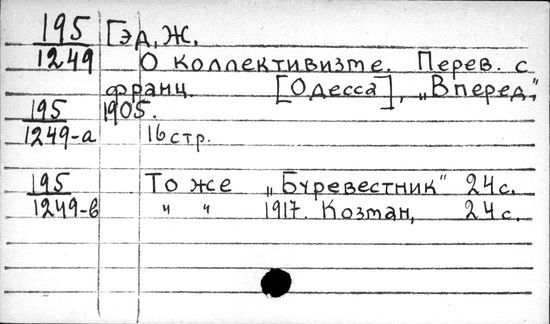 195 Гэд, Ж.
1249 О коллективизме. Перев. с
франц. [Одесса], „Вперед",
195 1905.
1249-а 16 стр.
195 То же „Буревестник" 24 с.
1249-в „ „ 1917. Козман, 24 с.